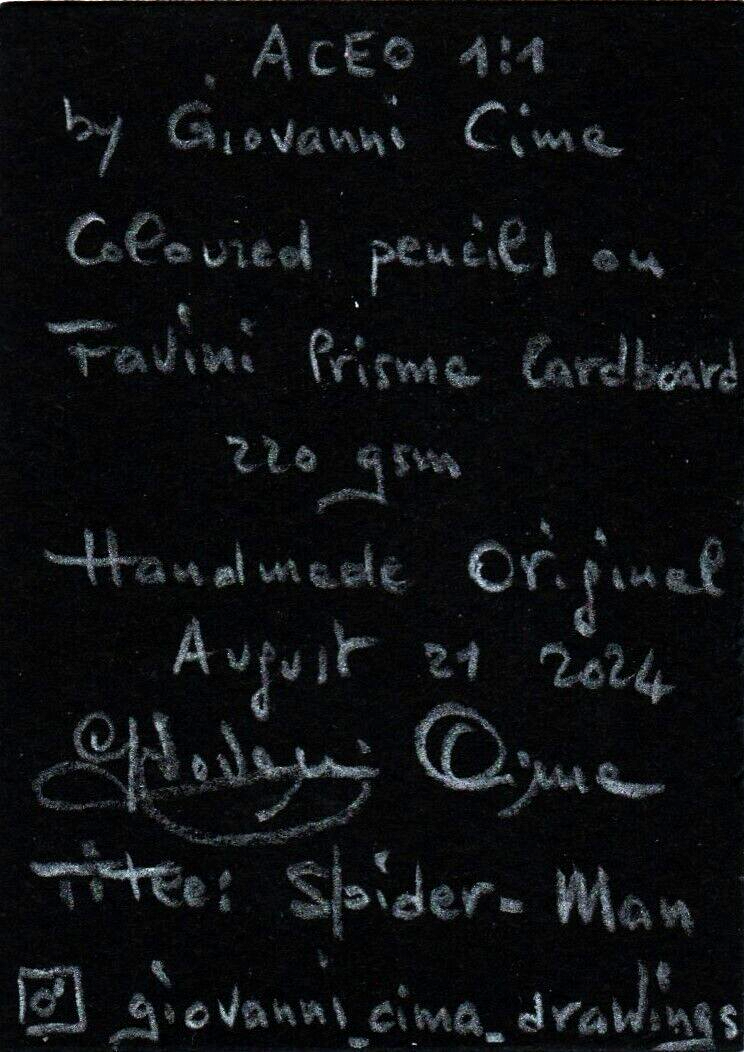 ACEO 1:1
by Giovanni Cima
Coloured pencils on
Favini Prisma Cardboard
220 gsm
Handmade Original
August 21 2024
Giovanni Cima
Title: Spider-Man
giovanni_cima_drawings